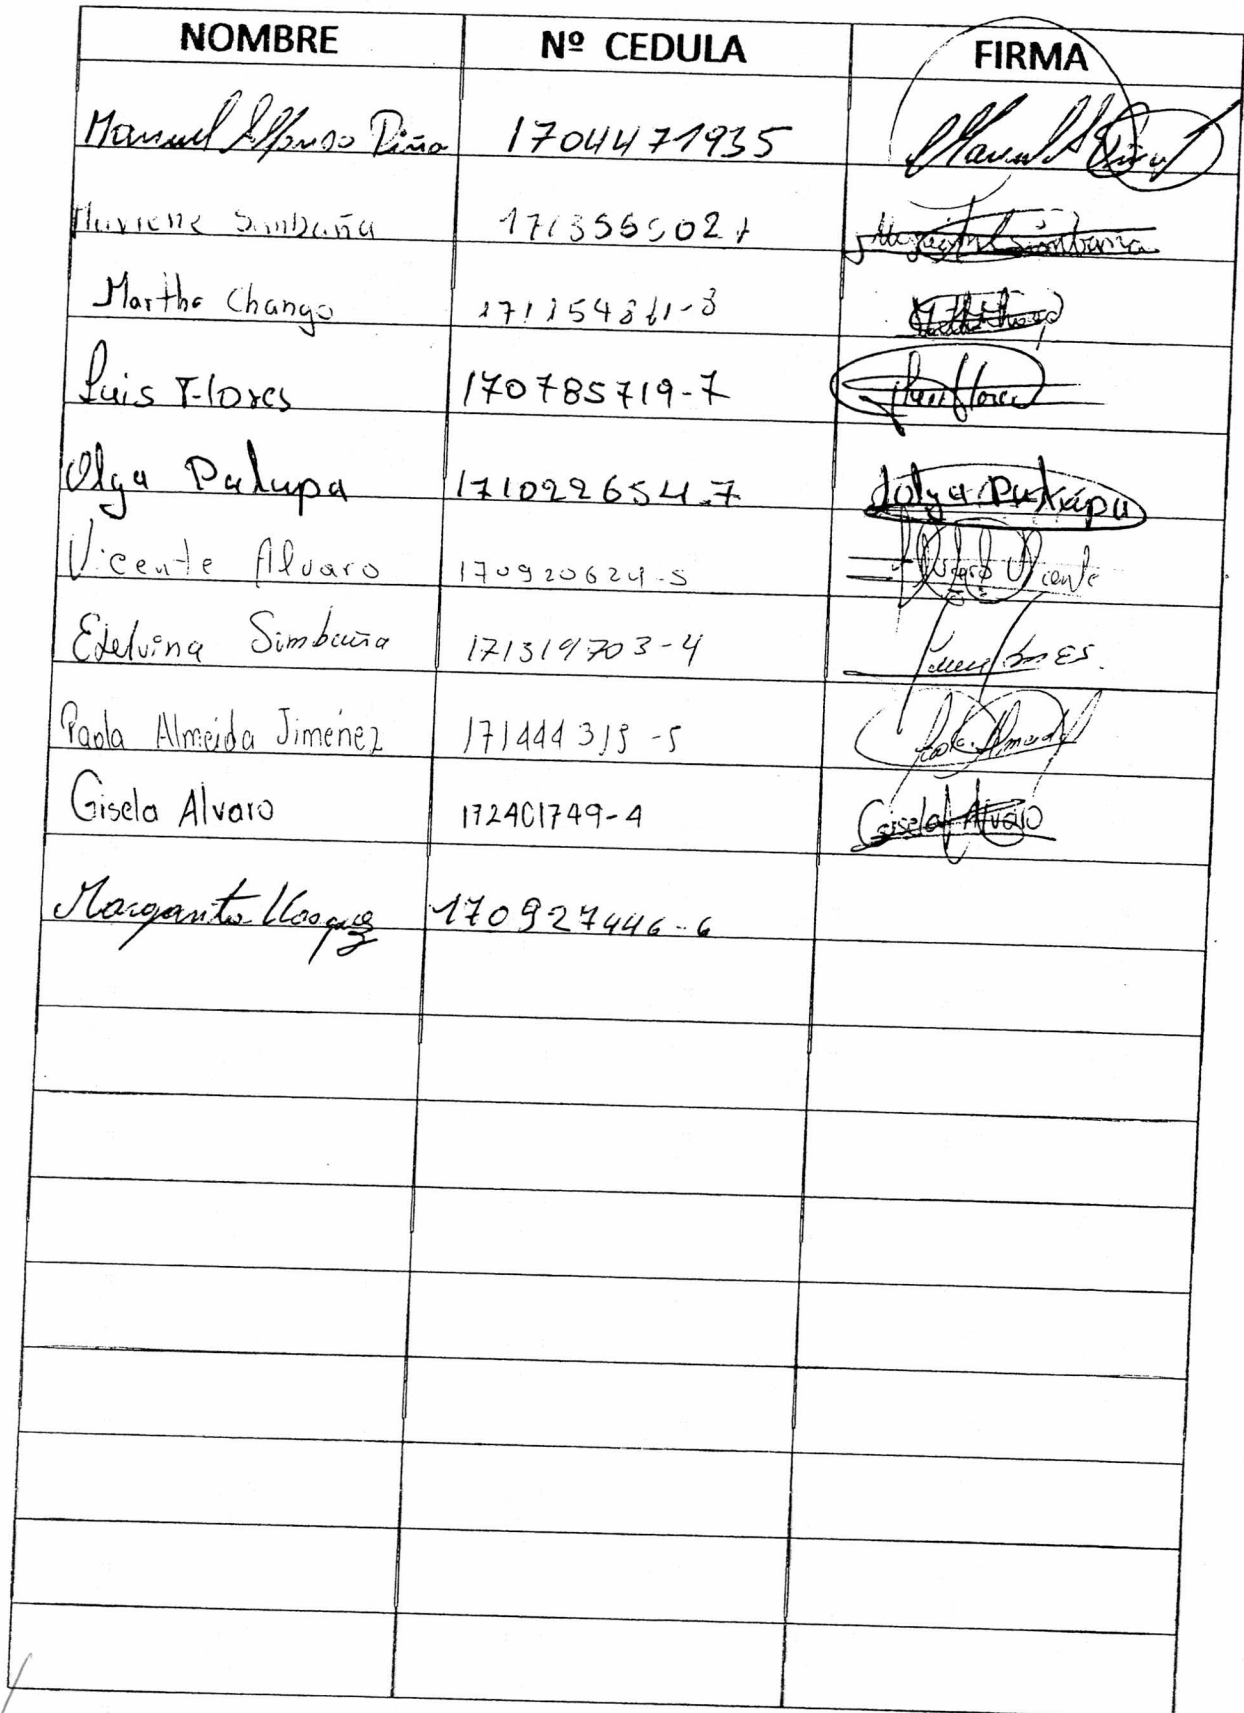 NOMBRE Nº CEDULA FIRMA
Manuel Alfonso Piña 1704471935 Manuel A Piña
Simbaña Simbaña
Martha Chango
Luis Flores 170785719-7 Luis Flores
Olga Pukupa 171022654-7 Olga
Vicente Alvaro 170920624-5 Alvaro Vicente
Edelvina Simbaña 171319703-4
Paola Almeida Jiménez 171444319-5 Paola Almeida
Gisela Alvaro 172401749-4 Gisela Alvaro
Margarita 170927446-6